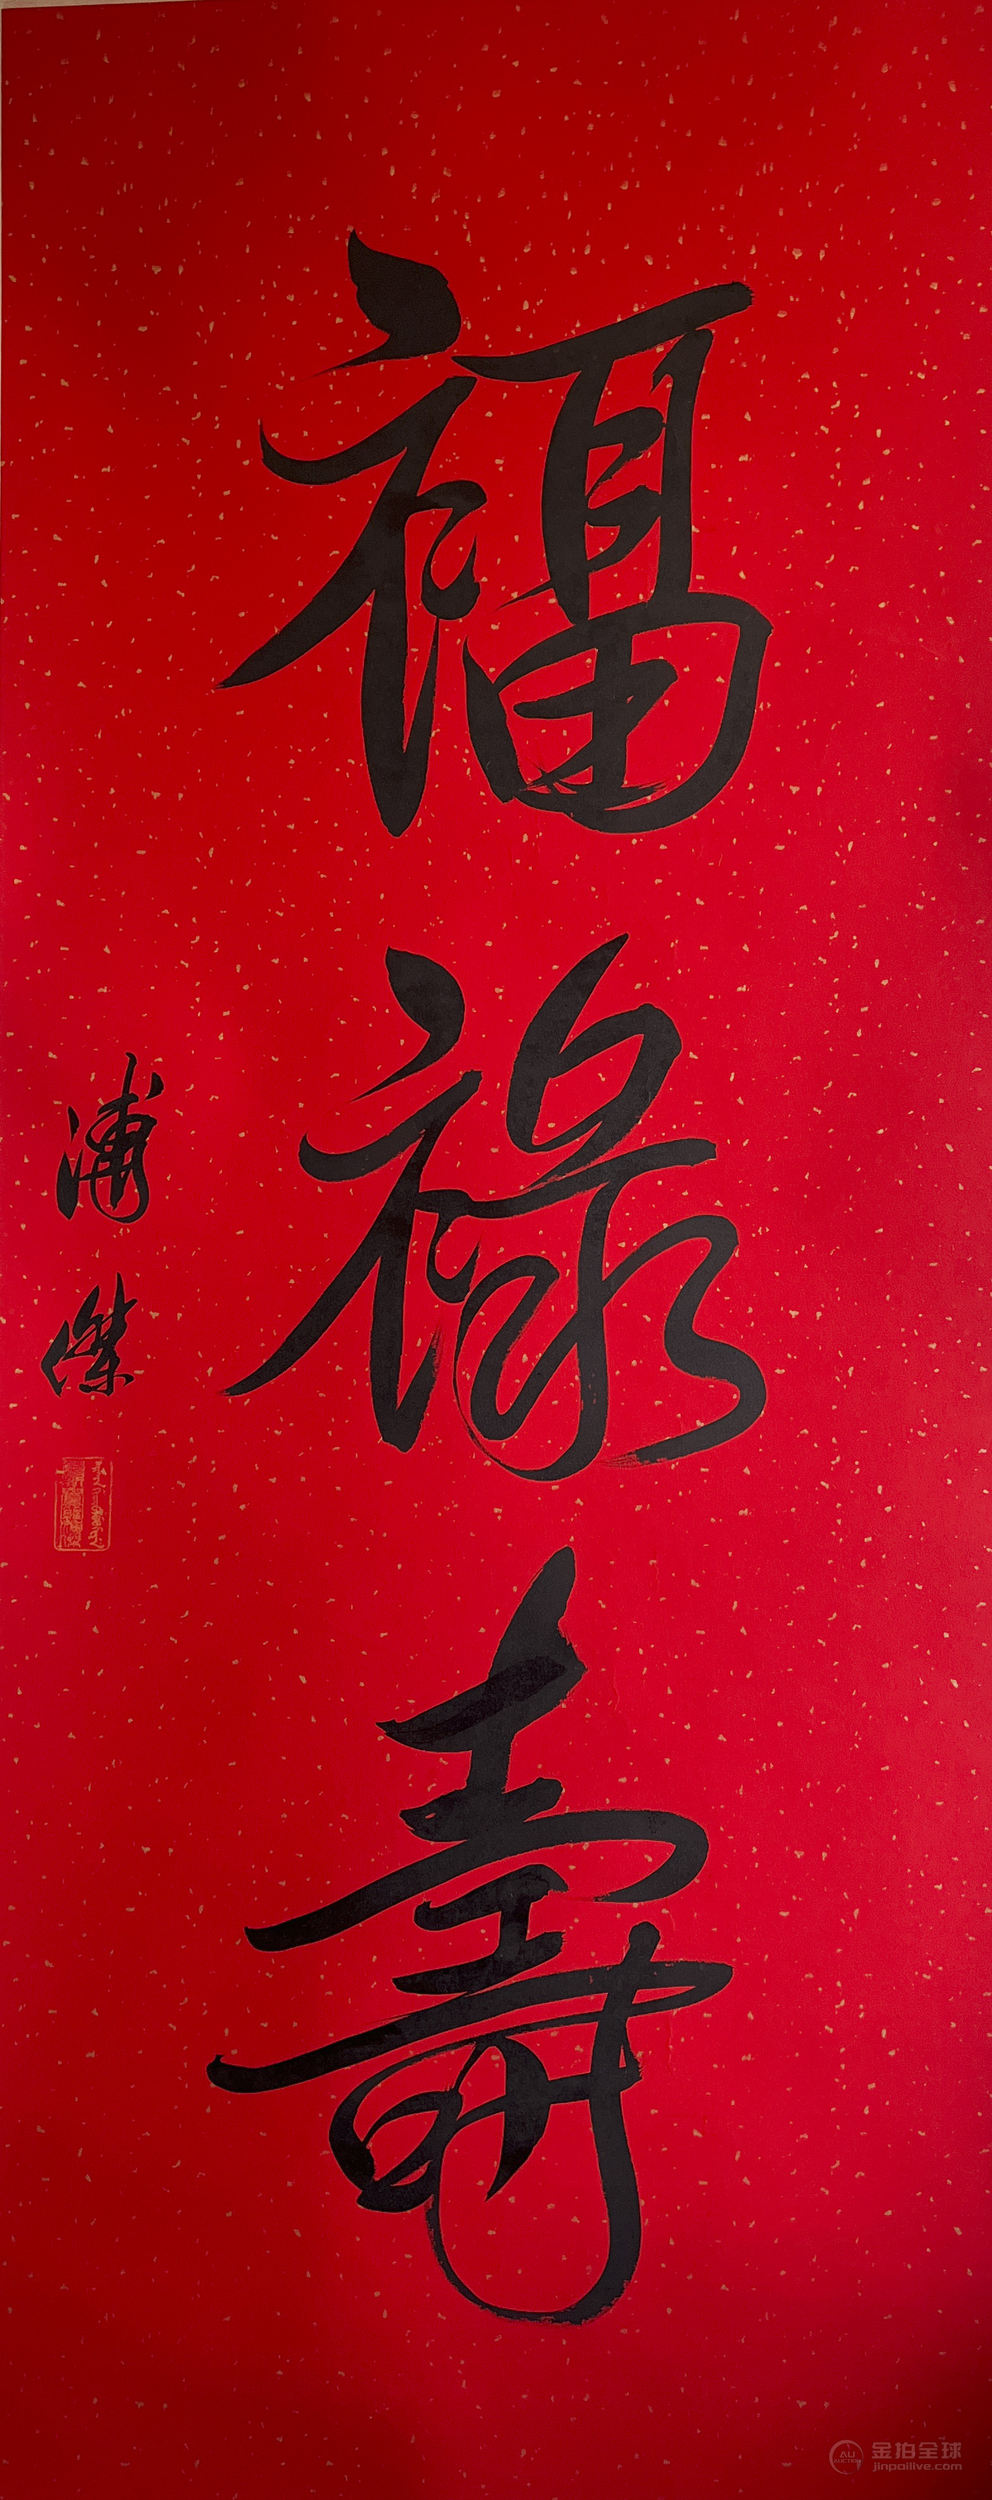 福祿壽
溥傑
AU
AUCTION
金拍全球
jinpailive.com